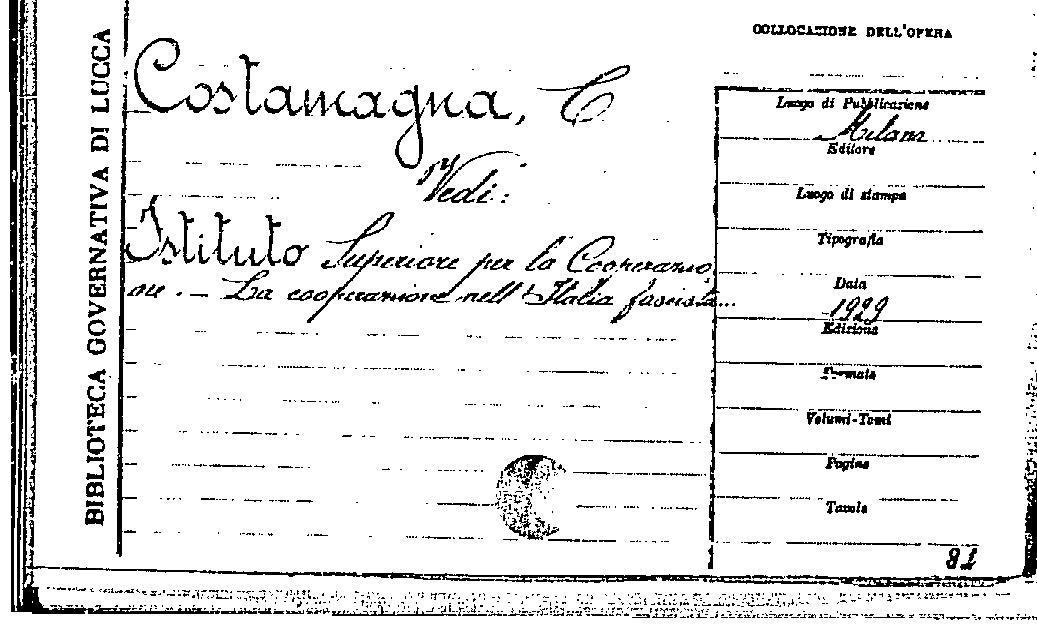 BIBLIOTECA GOVERNATIVA DI LUCCA
Costamagna, C
Vedi:
Istituto Superiore per la Cooperazio
ne. — La cooperazione nell'Italia fascista...
COLLOCAZIONE DELL'OPERA
Luogo di Pubblicazione
Milano
Editore
Luogo di stampa
Tipografia
Data
1929
Edizione
Formato
Volumi-Tomi
Pagine
Tavole
81